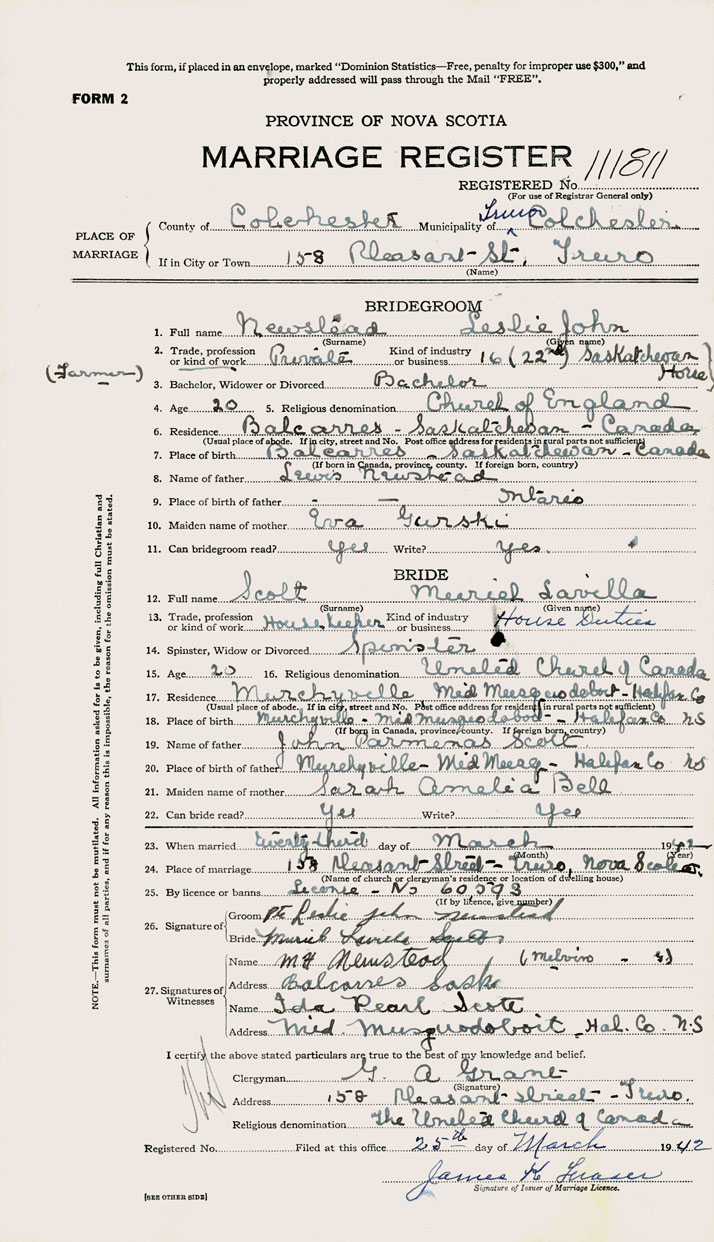 This form, if placed in an envelope, marked "Dominion Statistics—Free, penalty for improper use $300," and
properly addressed will pass through the Mail "FREE".
FORM 2
PROVINCE OF NOVA SCOTIA
MARRIAGE REGISTER 111811
REGISTERED No.
(For use of Registrar General only)
PLACE OF MARRIAGE
County of Colchester Municipality of Truro Colchester
If in City or Town 158 Pleasant St, Truro
(Name)
BRIDEGROOM
1. Full name Newstead Leslie John
(Surname) (Given name)
2. Trade, profession or kind of work Private Kind of industry or business 16 (22nd) Saskatchewan Horse
(Farmer)
3. Bachelor, Widower or Divorced Bachelor
4. Age 20 5. Religious denomination Church of England
6. Residence Balcarres - Saskatchewan - Canada
(Usual place of abode. If in city, street and No. Post office address for residents in rural parts not sufficient)
7. Place of birth Balcarres - Saskatchewan - Canada
(If born in Canada, province, county. If foreign born, country)
8. Name of father Lewis Newstead
9. Place of birth of father - — Ontario
10. Maiden name of mother Eva Gurski
11. Can bridegroom read? Yes Write? Yes.
BRIDE
12. Full name Scott Muriel Lavilla
(Surname) (Given name)
13. Trade, profession or kind of work House keeper Kind of industry or business House Duties
14. Spinster, Widow or Divorced Spinster
15. Age 20 16. Religious denomination United Church of Canada
17. Residence Murchyville Mid Musquodoboit - Halifax Co
(Usual place of abode. If in city, street and No. Post office address for residents in rural parts not sufficient)
18. Place of birth Murchyville - Mid Musquodobot - Halifax Co NS
(If born in Canada, province, county. If foreign born, country)
19. Name of father John Parmenas Scott
20. Place of birth of father Murchyville - Mid Musq - Halifax Co NS
21. Maiden name of mother Sarah Amelia Bell
22. Can bride read? Yes Write? Yes
23. When married twenty-third day of March 1942
(Month) (Year)
24. Place of marriage 158 Pleasant Street - Truro, Nova Scotia.
(Name of church or clergyman's residence or location of dwelling house)
25. By licence or banns License - No 60,593
(If by licence, give number)
26. Signature of
Groom Pte Leslie John Newstead
Bride Muriel Lavilla Scott
27. Signatures of Witnesses
Name M H Newstead (Melvin - )
Address Balcarres Sask
Name Ida Pearl Scott
Address Mid. Musquodoboit, Hal. Co. N.S
I certify the above stated particulars are true to the best of my knowledge and belief.
Clergyman G. A Grant
(Signature)
Address 158 Pleasant street - Truro.
Religious denomination The United Church of Canada
Registered No. Filed at this office 25th day of March 1942
James H Fraser
Signature of Issuer of Marriage Licence.
[SEE OTHER SIDE]
NOTE.—This form must not be mutilated. All information asked for is to be given, including full Christian and
surnames of all parties, and if for any reason this is impossible, the reason for the omission must be stated.